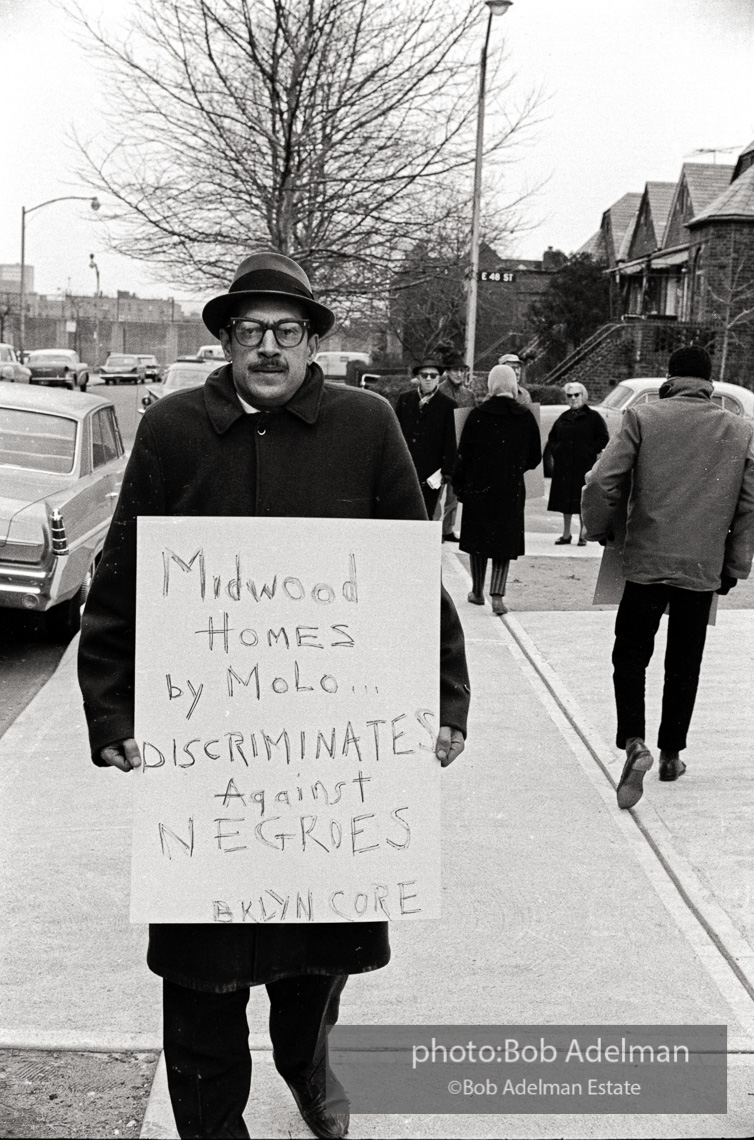 E 48 ST
Midwood
HOMES
by MoLo...
DISCRIMINATES
Against
NEGROES
BKLYN CORE
photo:Bob Adelman
©Bob Adelman Estate